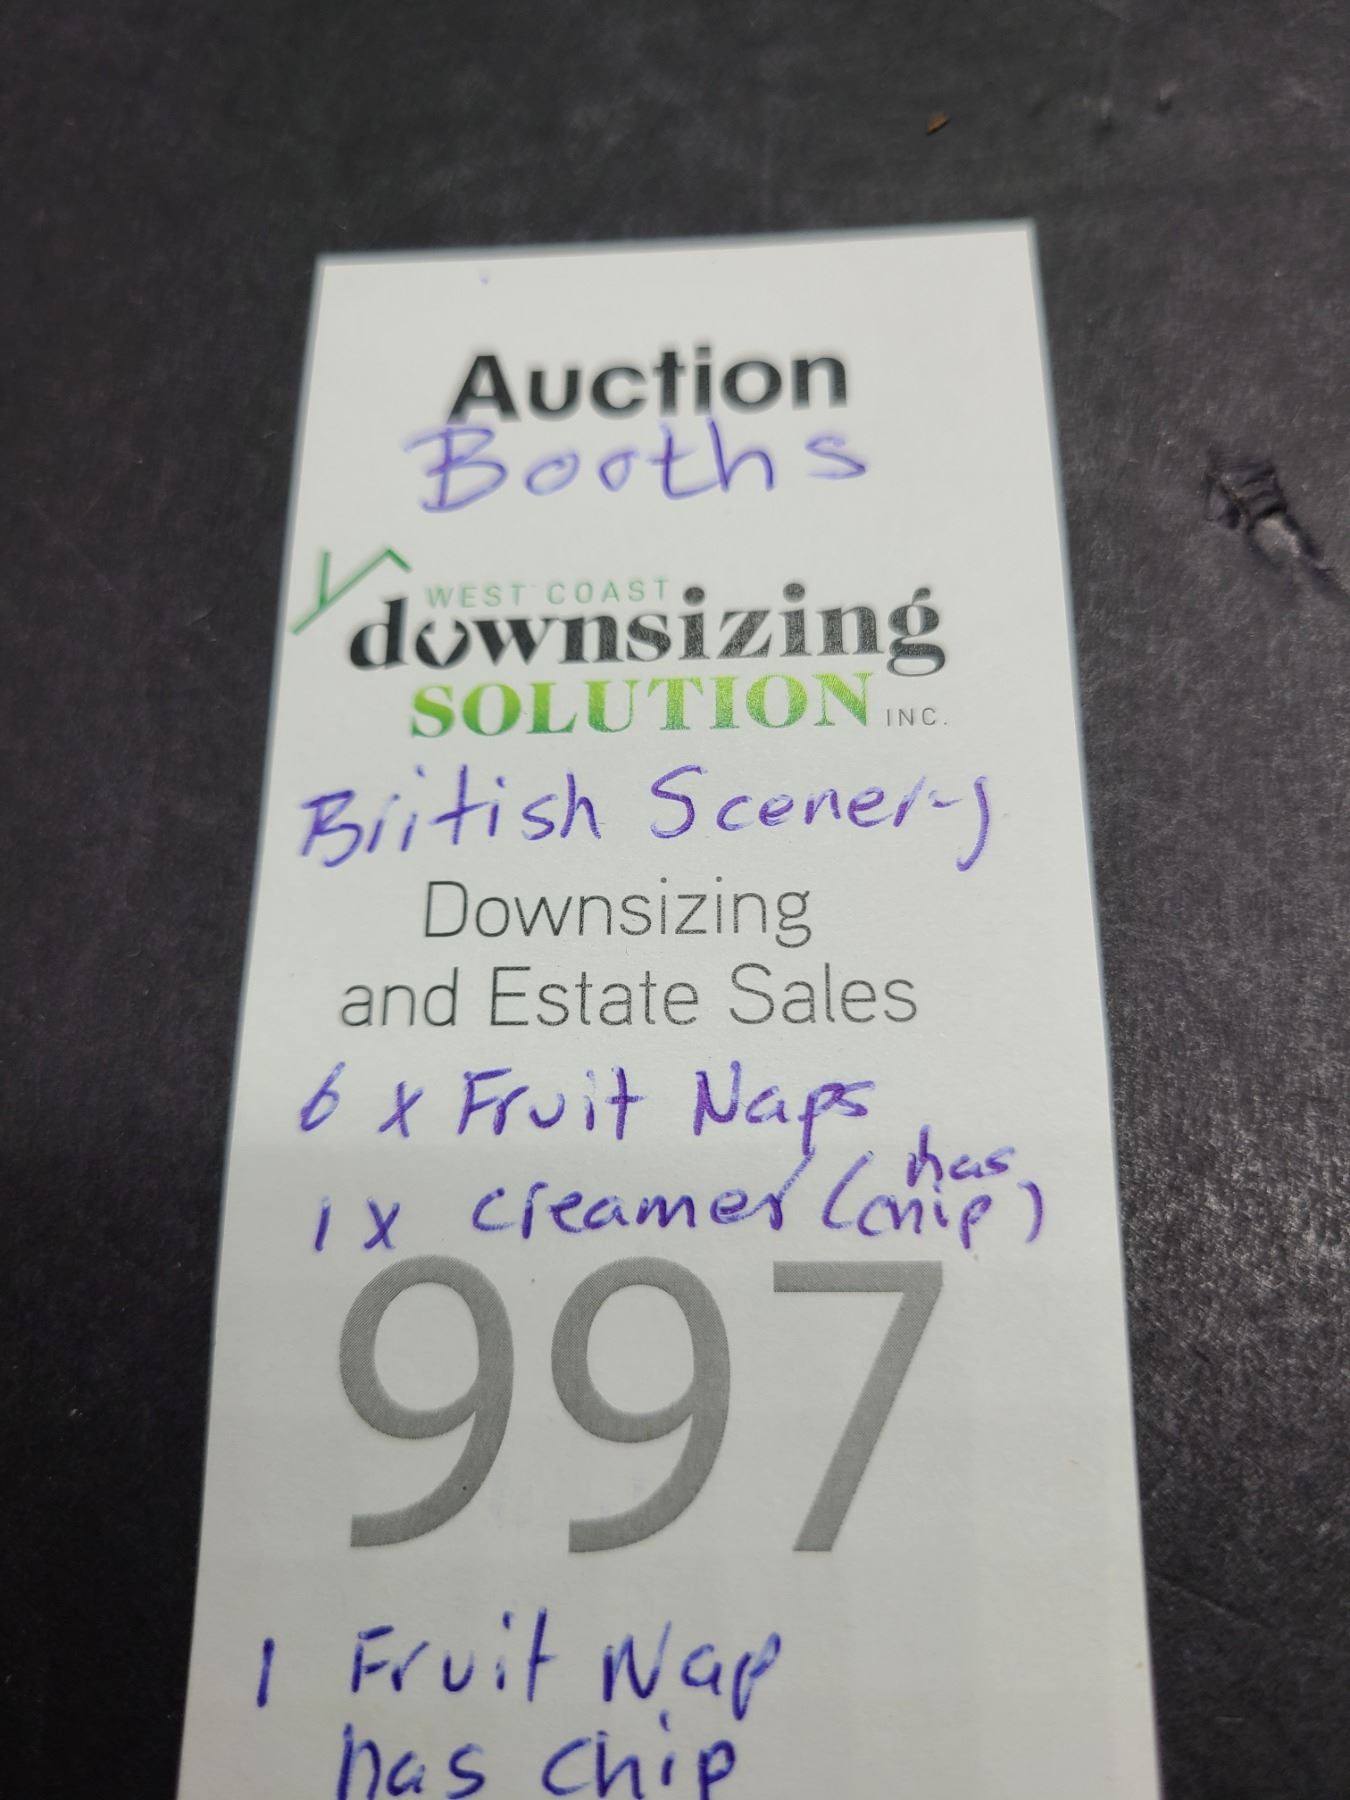 Auction
Booths
WEST COAST
downsizing
SOLUTION INC.
British Scenery
Downsizing
and Estate Sales
6 x Fruit Naps
1 x creamer (has chip)
997
1 Fruit Nap
has chip